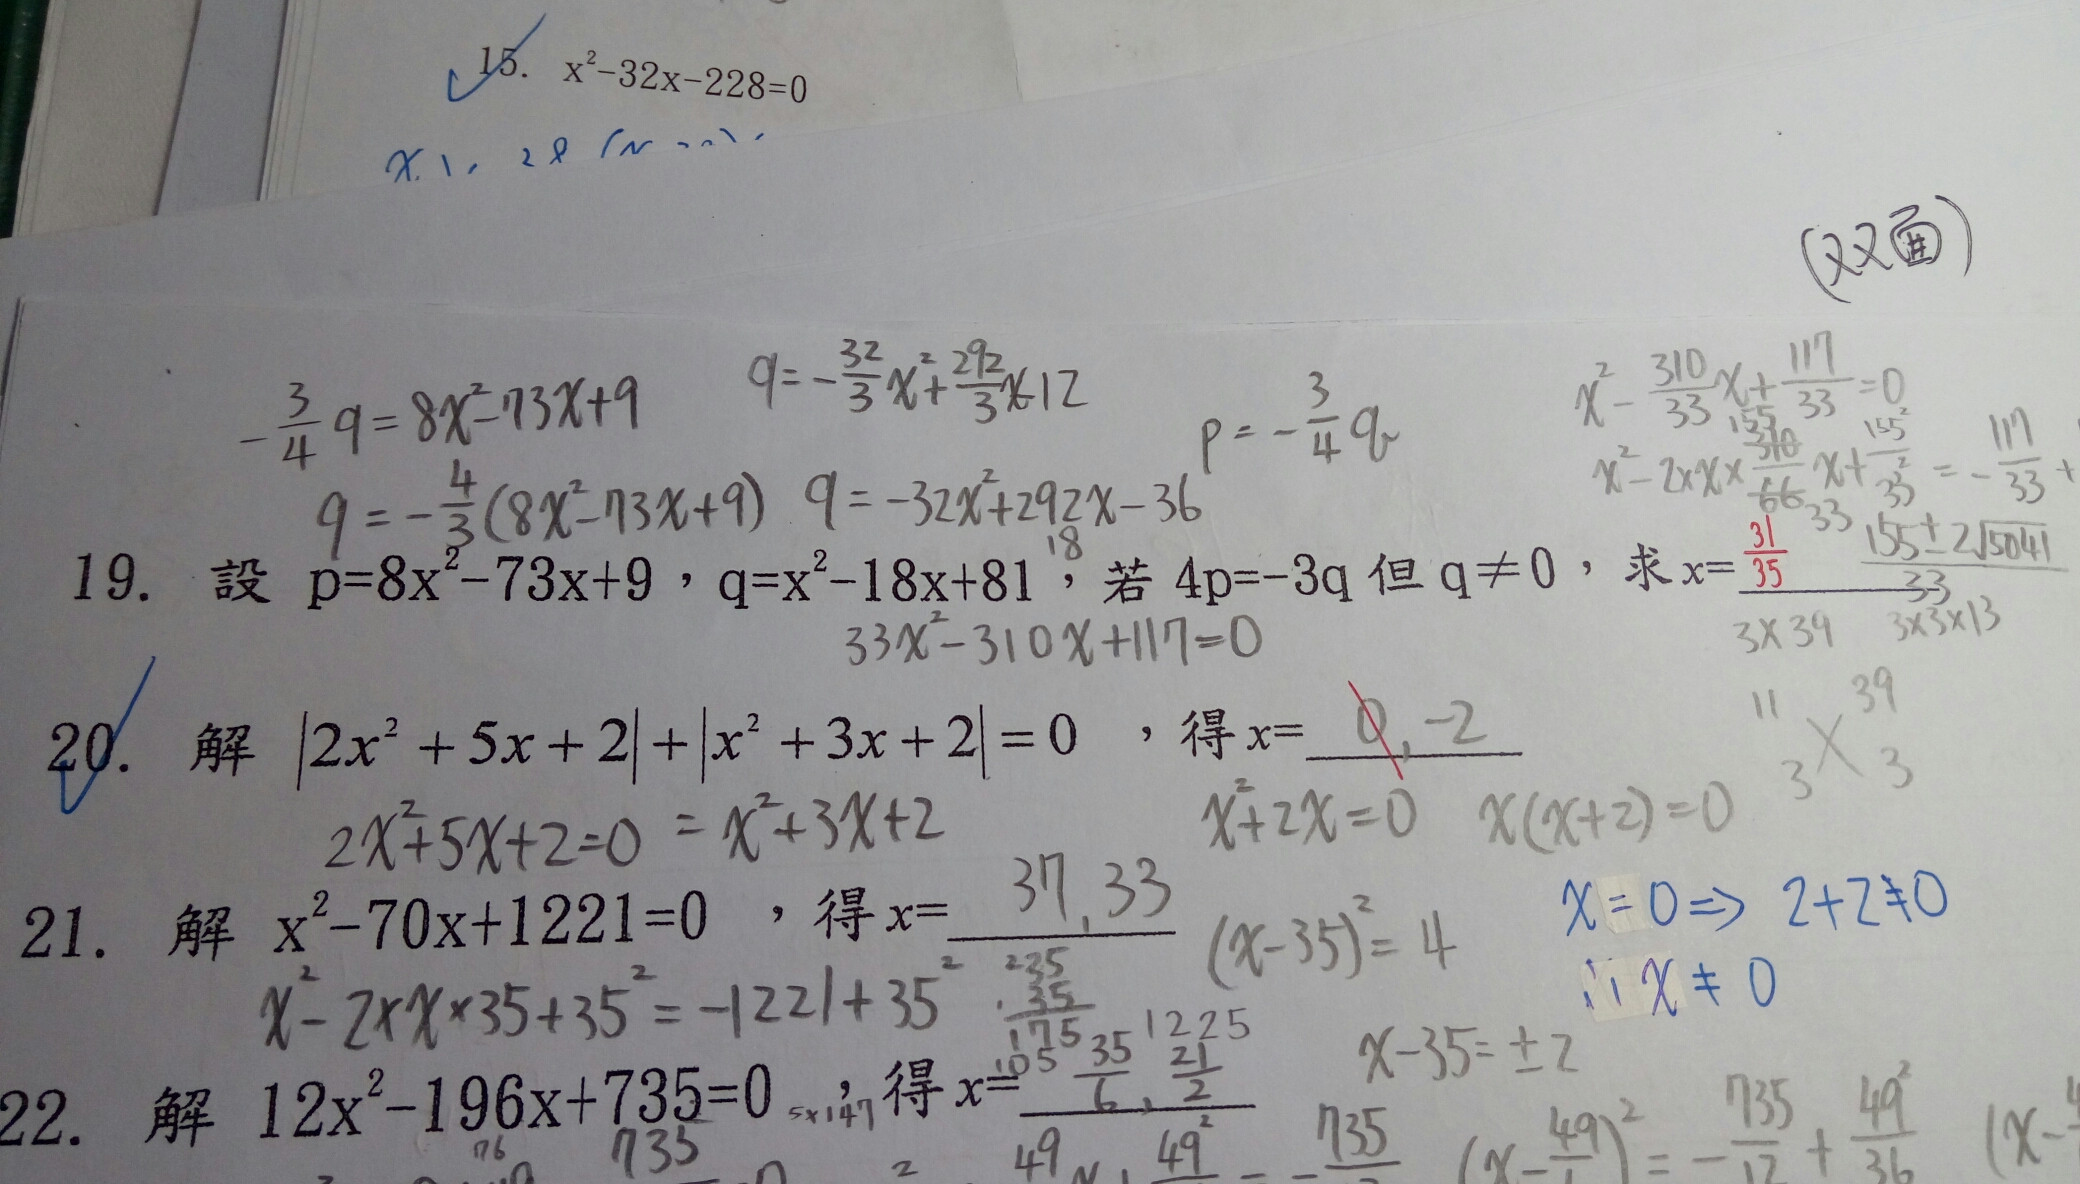 15. x²-32x-228=0
(双面)
-3/4 q=8x²-73x+9
q=-32/3 x²+292/3 x-12
p=-3/4 q
x²-310/33 x+117/33=0
q=-4/3(8x²-73x+9) q=-32x²+292x-36
19. 設 p=8x²-73x+9,q=x²-18x+81,若 4p=-3q 但 q≠0,求 x= 31/35
155±2√5041/33
18
33x²-310x+117=0
3×39 3×3×13
11 39
3 3
20. 解 |2x²+5x+2|+|x²+3x+2|=0 ,得 x= 0,-2
2x²+5x+2=0 = x²+3x+2
x²+2x=0 x(x+2)=0
21. 解 x²-70x+1221=0 ,得 x= 37,33
(x-35)²=4
x=0⇒ 2+2≠0
∴ x≠0
x²-2×x×35+35²=-1221+35²
35
35
175
105
1225
x-35=±2
22. 解 12x²-196x+735=0 ,得 x= 35/6,21/2
5×147
735
49
49²
735
(x-49/)²=-735/12+49²/36
(x-